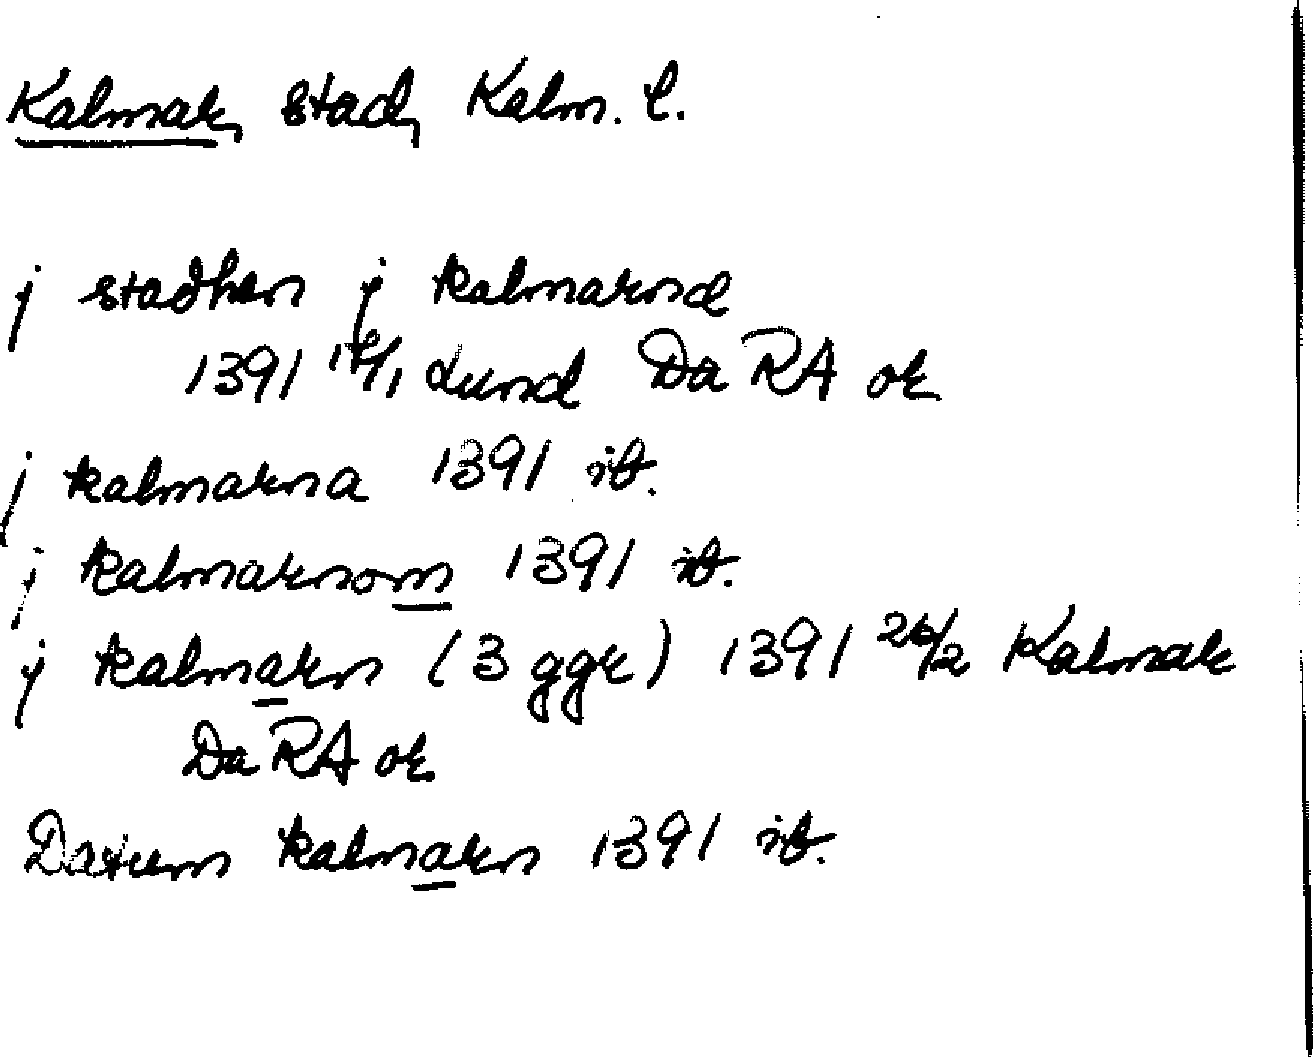 Kalmar, stad, Kalm. l.
j stadhen j kalmarnd
1391 16/1 Lund Da RA or
j kalmarna 1391 ib.
j kalmarnom 1391 ib.
j kalmarn (3 ggr) 1391 26/2 Kalmar
Da RA or
Datum kalmarn 1391 ib.